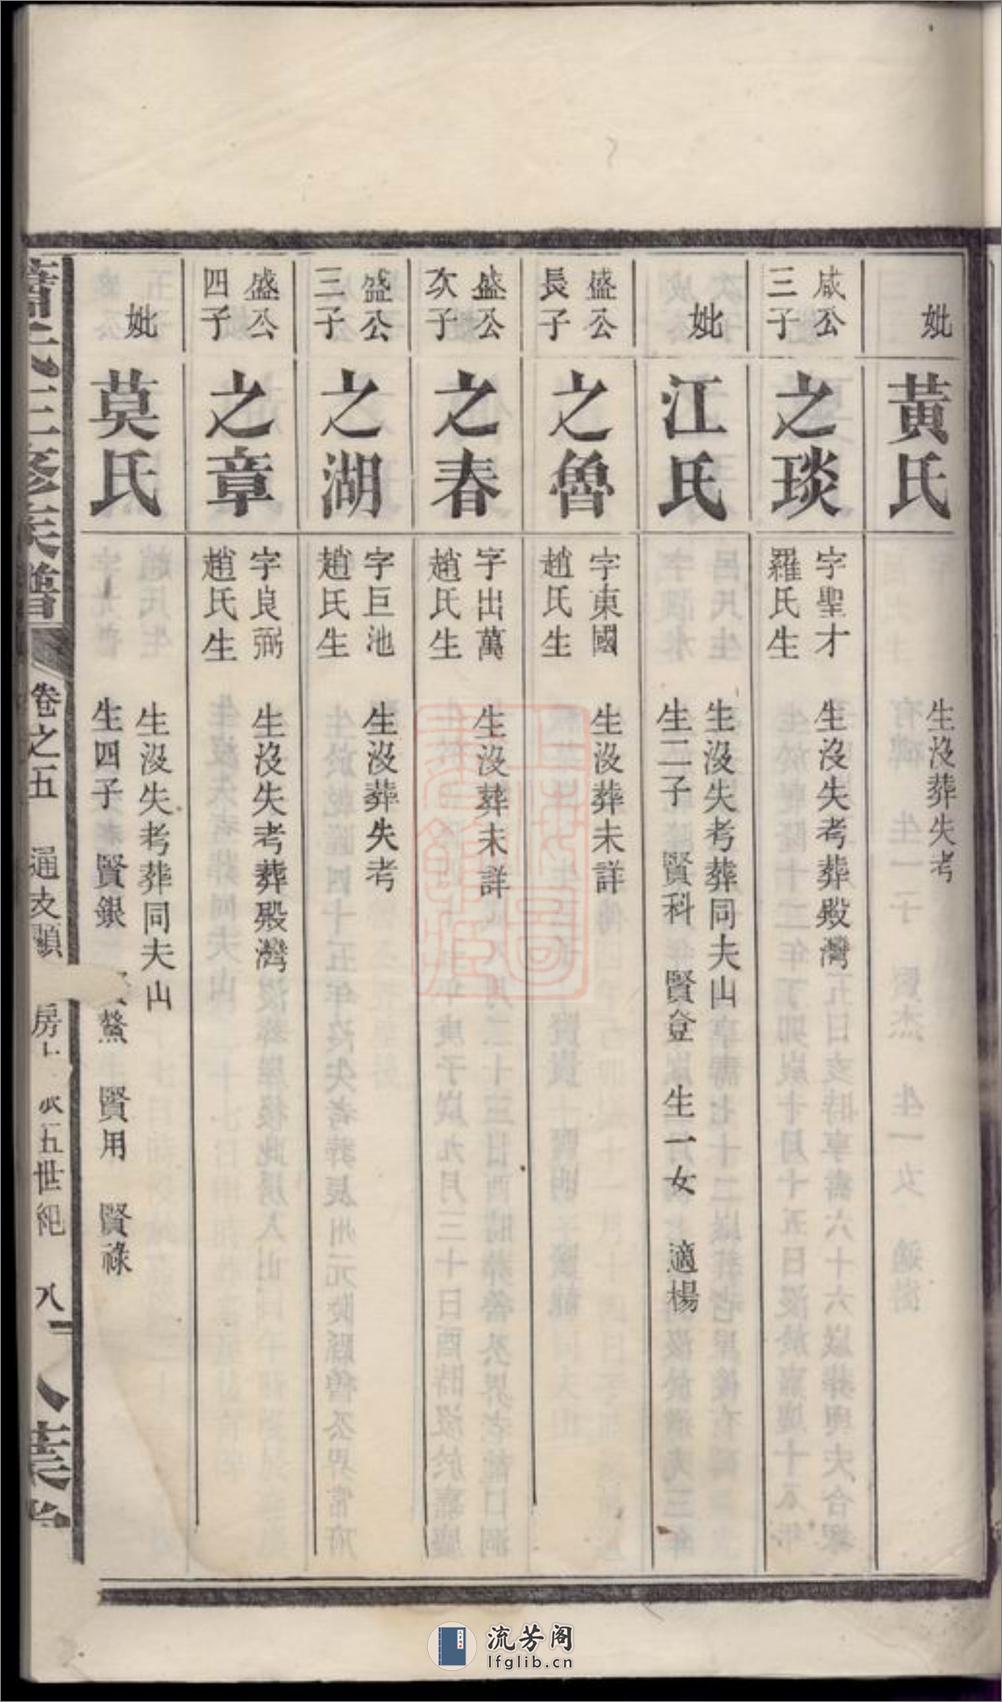 妣
黃氏
生沒葬失考
咸公
三子
之琰
字聖才
羅氏生
生沒失考葬殿灣
妣
江氏
生沒失考葬同夫山
生二子 賢科 賢登 生一女 適楊
盛公
長子
之魯
字東國
趙氏生
生沒葬未詳
盛公
次子
之春
字出萬
趙氏生
生沒葬未詳
盛公
三子
之湖
字巨池
趙氏生
生沒葬失考
盛公
四子
之章
字良弼
趙氏生
生沒失考葬殿灣
妣
莫氏
生沒失考葬同夫山
生四子 賢銀 鰲 賢用 賢祿
蕭氏三修族譜 卷之五 通支顯 房 五世紀 八葉堂
流芳阁
lfglib.cn